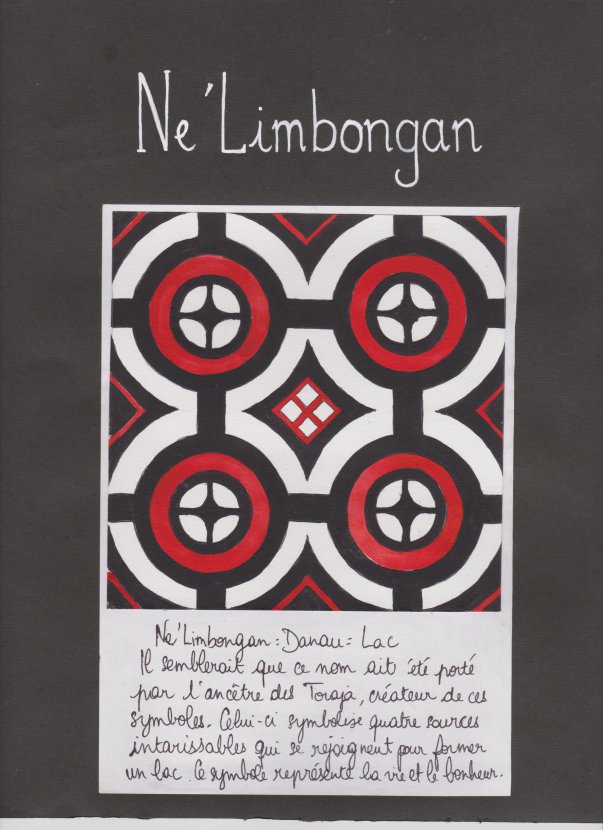 Ne'Limbongan
Ne'Limbongan = Danau = Lac
Il semblerait que ce nom ait été porté
par l'ancêtre des Toraja, créateur de ces
symboles. Celui-ci symbolise quatre sources
intarissables qui se rejoignent pour former
un lac. Ce symbole représente la vie et le bonheur.